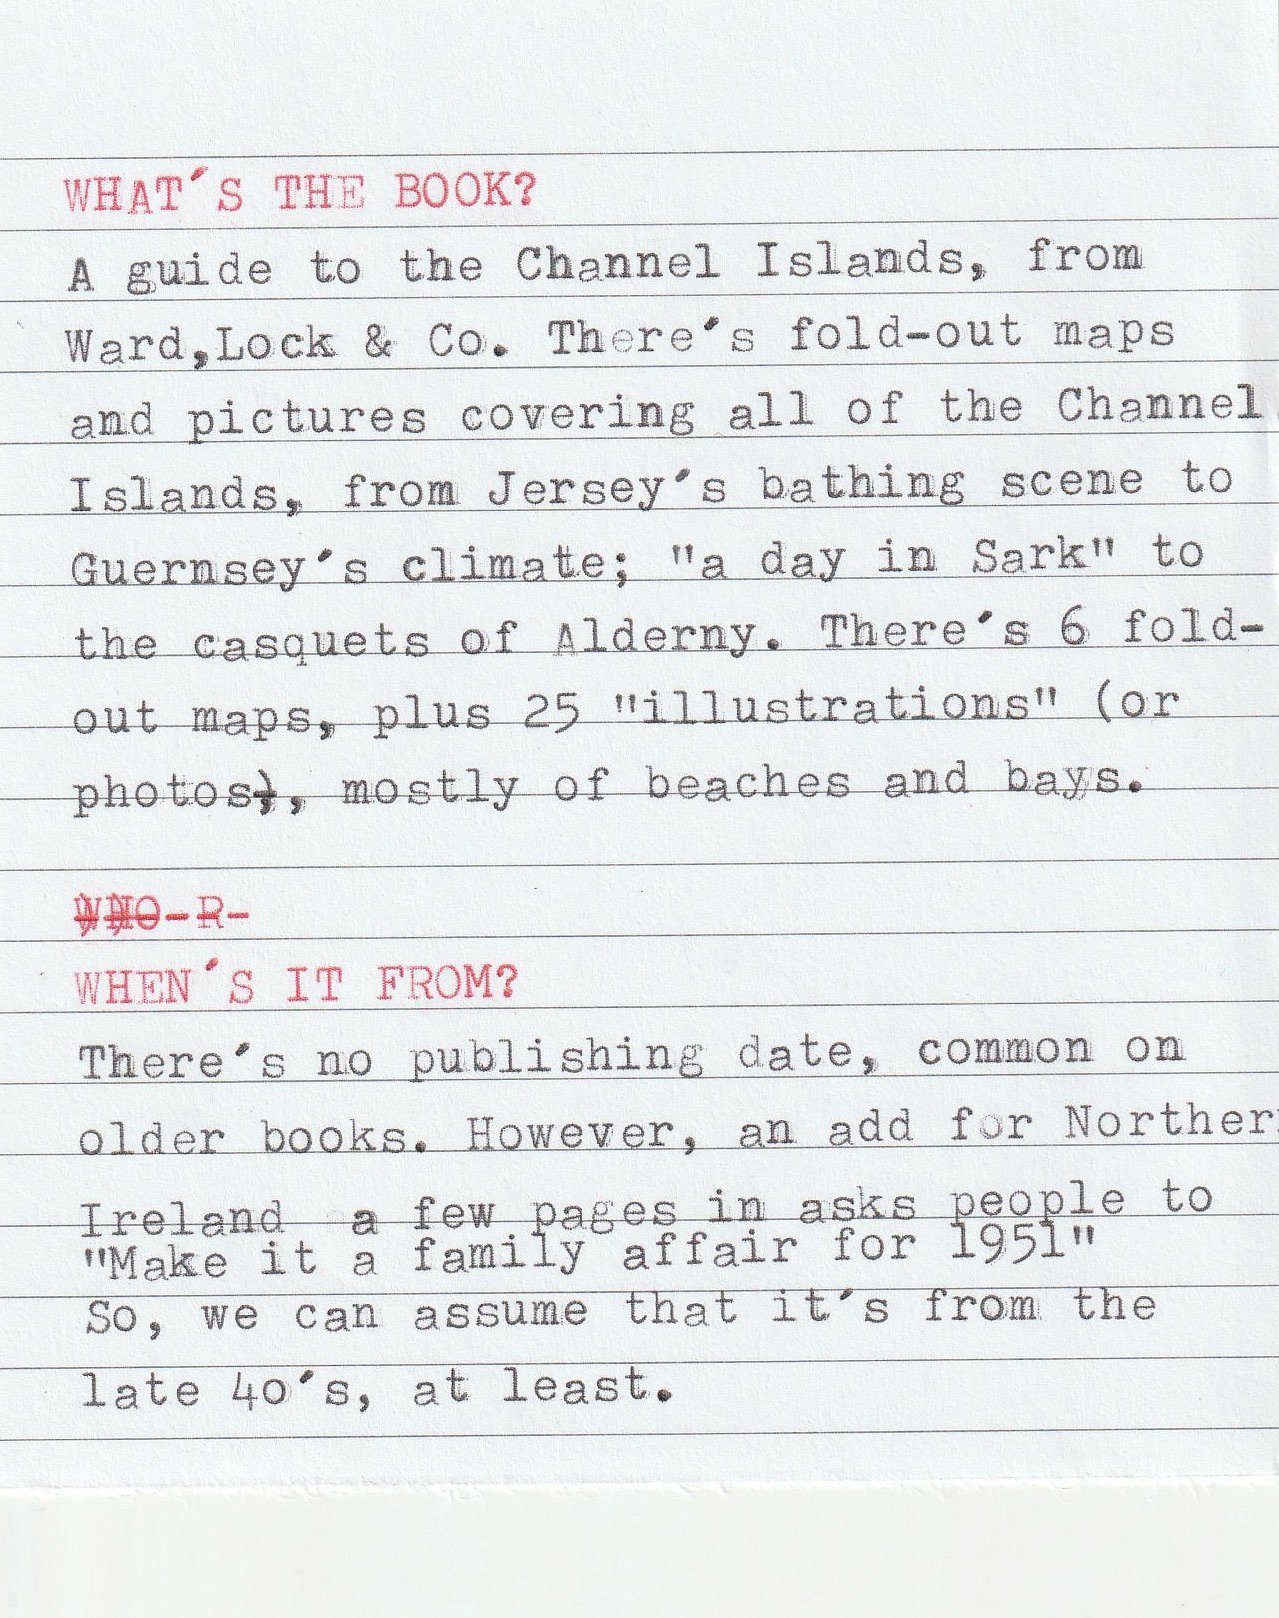 WHAT´S THE BOOK?
A guide to the Channel Islands, from
Ward,Lock & Co. There´s fold-out maps
and pictures covering all of the Channel
Islands, from Jersey´s bathing scene to
Guernsey´s climate; "a day in Sark" to
the casquets of Alderny. There´s 6 fold-
out maps, plus 25 "illustrations" (or
photos), mostly of beaches and bays.
WHEN´S IT FROM?
There´s no publishing date, common on
older books. However, an add for Norther
Ireland a few pages in asks people to
"Make it a family affair for 1951"
So, we can assume that it´s from the
late 40´s, at least.